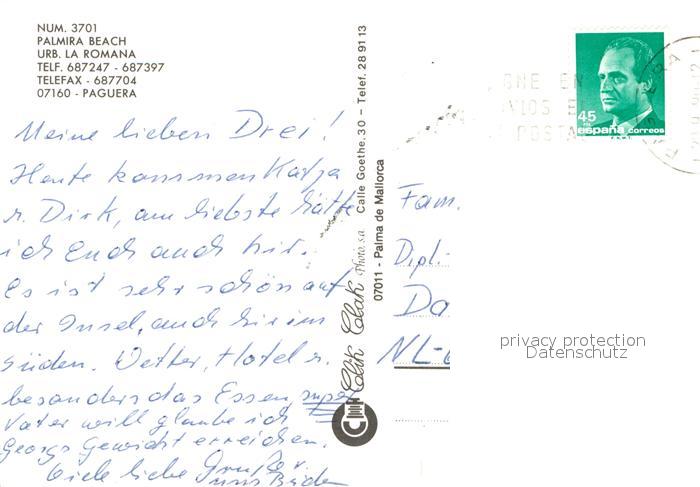 NUM. 3701
PALMIRA BEACH
URB. LA ROMANA
TELF. 687247 - 687397
TELEFAX - 687704
07160 - PAGUERA
Meine lieben Drei!
Heute kommen Katja
u. Dirk, am liebste hätte
ich Euch auch hir.
Es ist sehr schön auf
der Insel, auch hir im
Süden. Wetter, Hotel u.
besonders das Essen super
Vater will glaube ich
Georgs Gewicht erreichen.
Viele liebe Grüße
Clik Clak Photo, s.a. Calle Goethe, 30 - Telef. 28 91 13
07011 - Palma de Mallorca
45
españa correos
Fam.
Dipl.
Da
NL-
privacy protection
Datenschutz